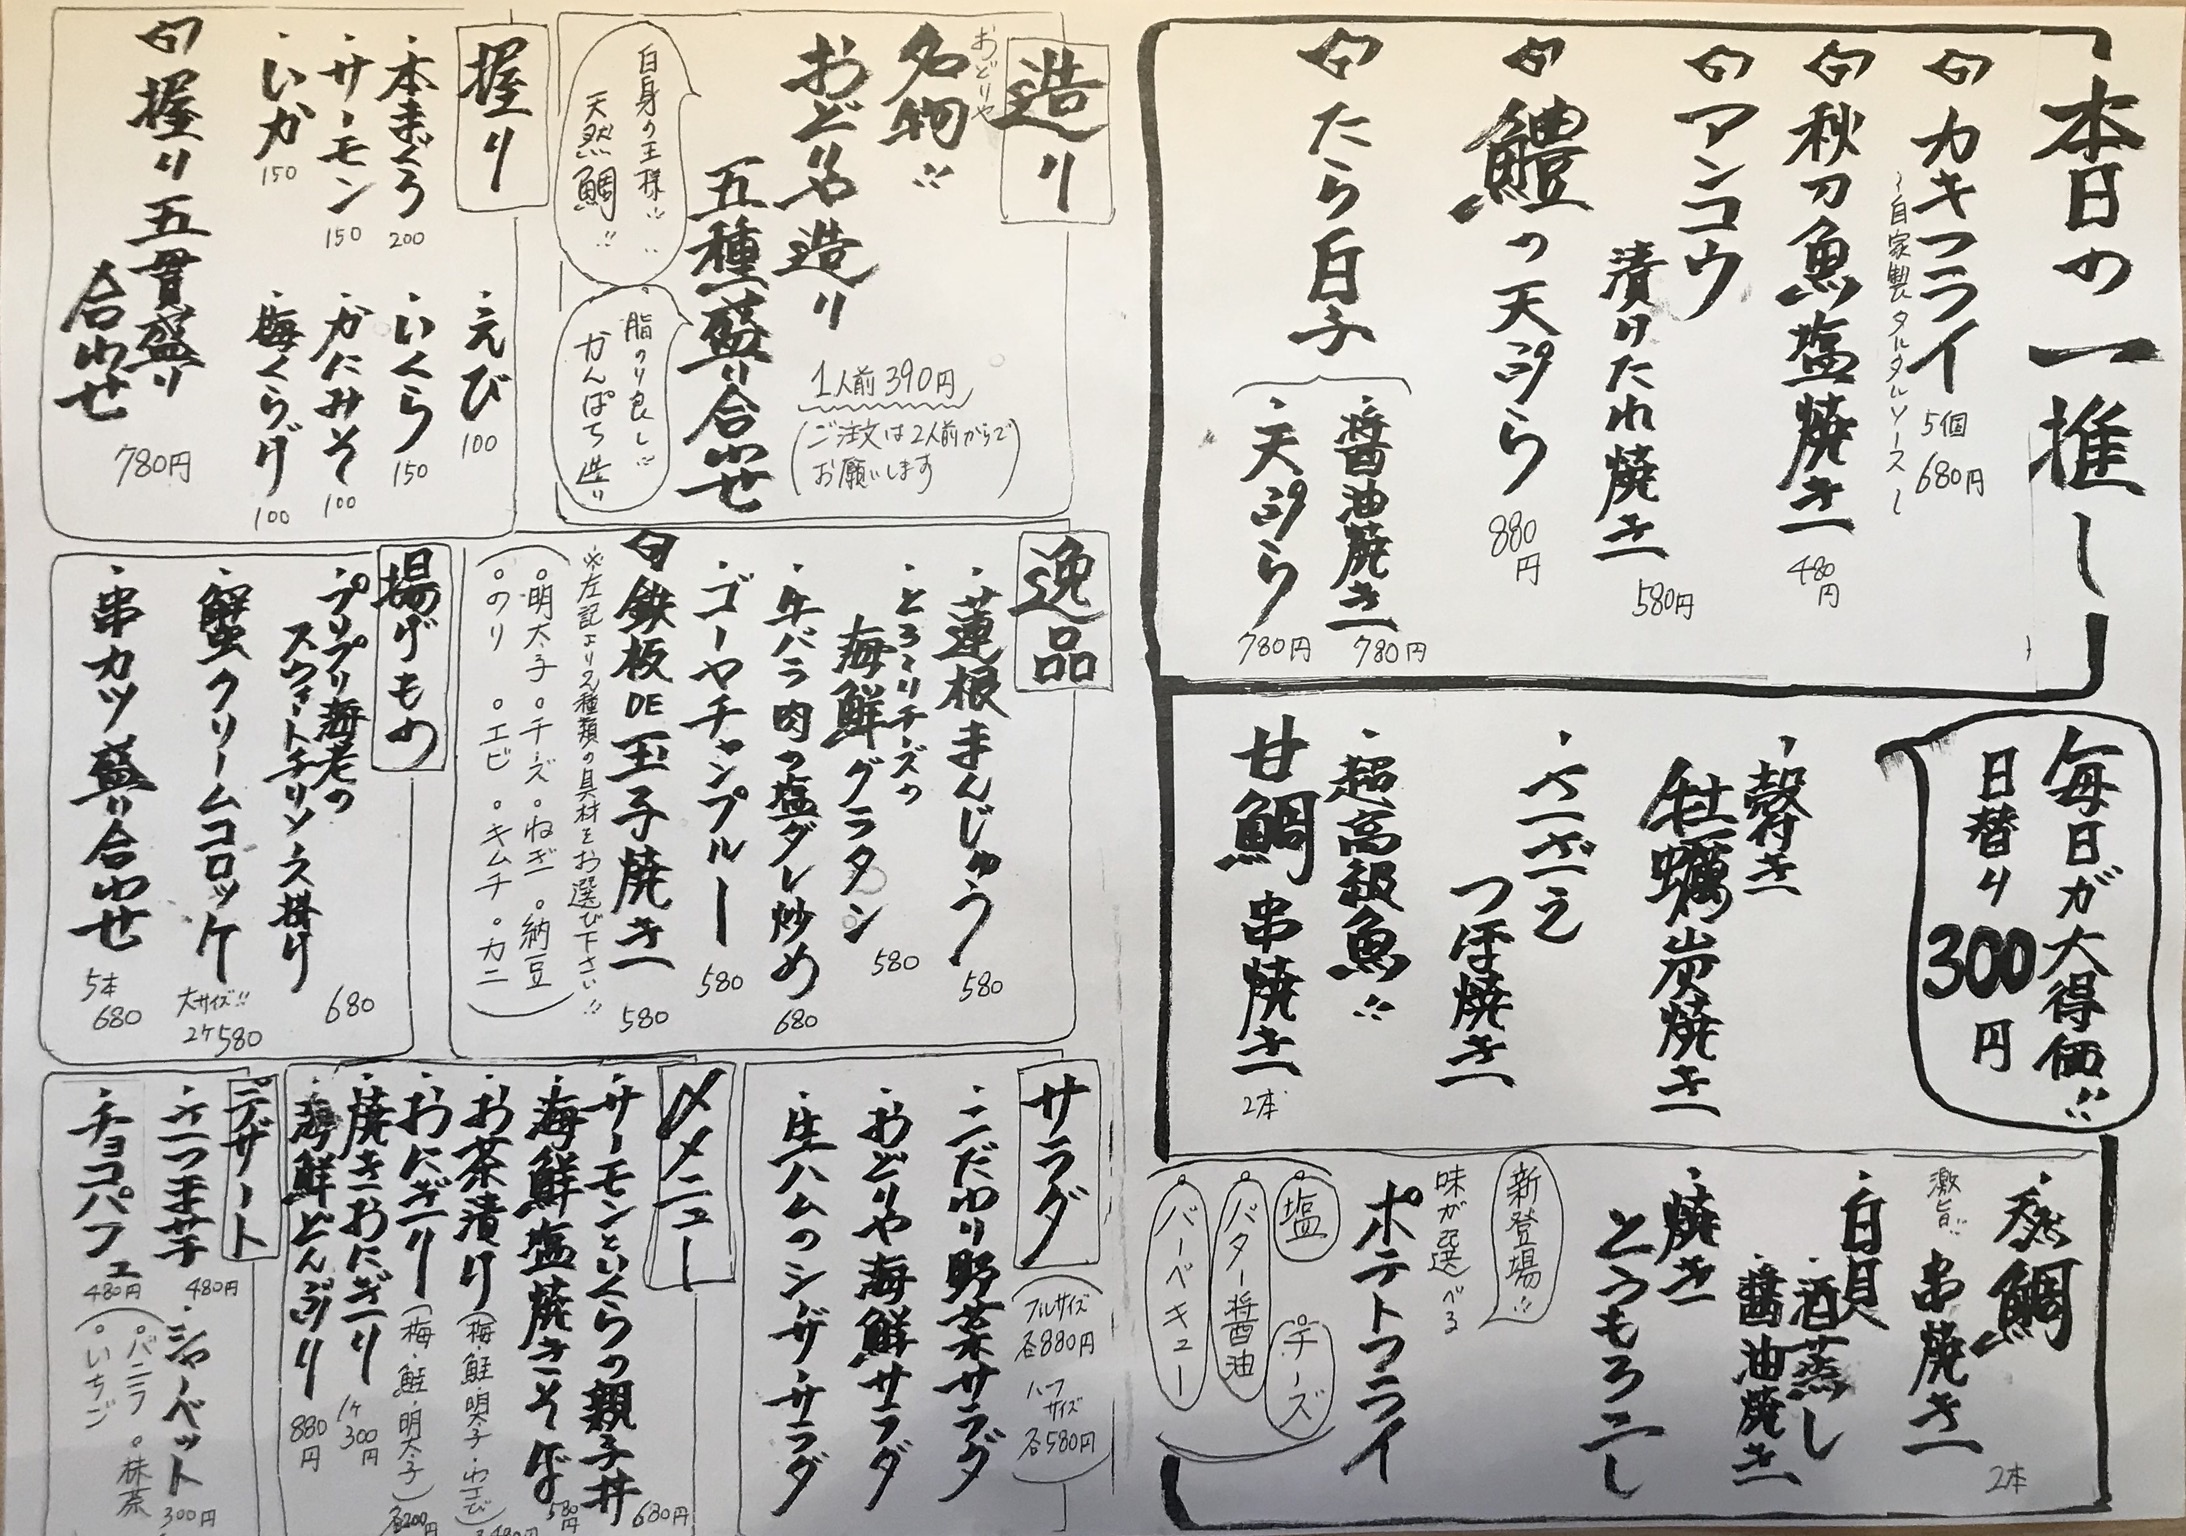 本日の一推し
カキフライ 5個 680円
~自家製タルタルソース~
秋刀魚塩焼き 480円
アンコウ
漬けたれ焼き 580円
鱧の天ぷら 880円
たら白子
・醤油焼き 780円
・天ぷら 780円
毎日が大得価!!
日替り 300円
・殻付き
牡蠣炭焼き
・さざえ
つぼ焼き
・超高級魚!!
甘鯛串焼き 2本
・天然鯛
激旨!! 串焼き 2本
・白貝
・酒蒸し
・醤油焼き
・焼き
とうもろこし
新登場!!
味が選べる
ポテトフライ
塩
チーズ
バター醤油
バーベキュー
造り
おどりや
名物!!
おどり名造り
五種盛り合わせ
1人前390円
(ご注文は2人前からで
お願いします)
白身の王様!!
天然鯛!!
脂のり良し!!
かんぱち造り
握り
・本まぐろ 200
・サーモン 150
・いか 150
・えび 100
・いくら 150
・かにみそ 100
・梅くらげ 100
握り五貫盛り
合わせ 780円
逸品
・蓮根まんじゅう 580
・とろ〜りチーズの
海鮮グラタン 580
・牛バラ肉の塩ダレ炒め 680
・ゴーヤチャンプルー 580
鉄板DE玉子焼き 580
※左記より2種類の具材をお選び下さい!!
。明太子 。チーズ 。ねぎ 。納豆
。のり 。エビ 。キムチ 。カニ
揚げもの
・プリプリ海老の
スウィートチリソース掛け 680
・蟹クリームコロッケ 大サイズ!! 2ケ580
・串カツ盛り合わせ 5本 680
サラダ
(フルサイズ 各880円 ハーフサイズ 各580円)
・こだわり野菜サラダ
・おどりや海鮮サラダ
・生ハムのシーザーサラダ
〆メニュー
・サーモンといくらの親子丼 680円
・海鮮塩焼きそば 580円
・お茶漬け (梅・鮭・明太子・わさび) 480円
・おにぎり (梅・鮭・明太子) 各200円
・焼きおにぎり 1ケ 300円
・海鮮どんぶり 880円
デザート
・さつま芋 480円
・シャーベット 300円
(。バニラ 。抹茶
。いちご
・チョコパフェ 480円